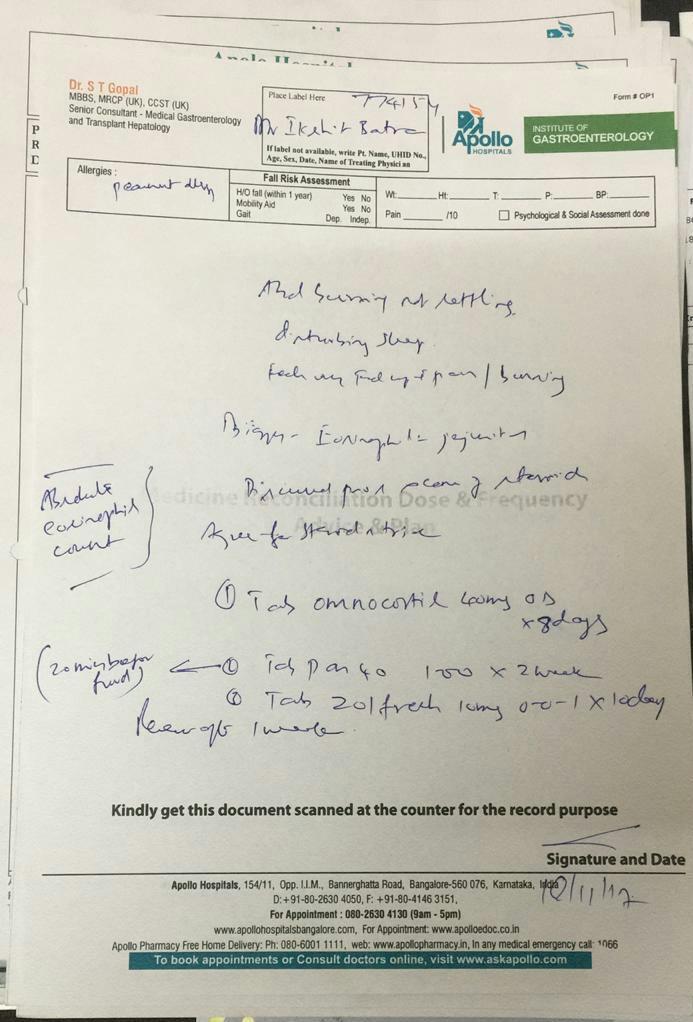 Apollo Hospitals
Dr. S T Gopal
MBBS, MRCP (UK), CCST (UK)
Senior Consultant - Medical Gastroenterology
and Transplant Hepatology
Place Label Here
774154
Mr Ikshit Batra
If label not available, write Pt. Name, UHID No.,
Age, Sex, Date, Name of Treating Physician
Apollo
HOSPITALS
Form # OP1
INSTITUTE OF
GASTROENTEROLOGY
P
R
D
Allergies :
peanut
Fall Risk Assessment
H/O fall (within 1 year) Yes No
Mobility Aid Yes No
Gait Dep. Indep.
Wt: Ht: T: P: BP:
Pain /10 Psychological & Social Assessment done
Abd burning not settling
disturbing sleep
/ burning
Biopsy - Eosinophilic jejunitis
Discussed pros & cons of steroid
Medicine Reconciliation Dose & Frequency
Advice & Plan
Agree for steroid
Absolute
eosinophil
count
① Tab omnacortil 40mg OD
x 8days
(20 mins before
food)
Tab Pan 40 1-0-0 x 2 week
Tab Zolfresh 10mg 0-0-1 x 10day
Review after 1 week
Kindly get this document scanned at the counter for the record purpose
Signature and Date
Apollo Hospitals, 154/11, Opp. I.I.M., Bannerghatta Road, Bangalore-560 076, Karnataka, India
D:+91-80-2630 4050, F: +91-80-4146 3151,
For Appointment : 080-2630 4130 (9am - 5pm)
www.apollohospitalsbangalore.com, For Appointment: www.apolloedoc.co.in
Apollo Pharmacy Free Home Delivery: Ph: 080-6001 1111, web: www.apollopharmacy.in, In any medical emergency call: 1066
To book appointments or Consult doctors online, visit www.askapollo.com